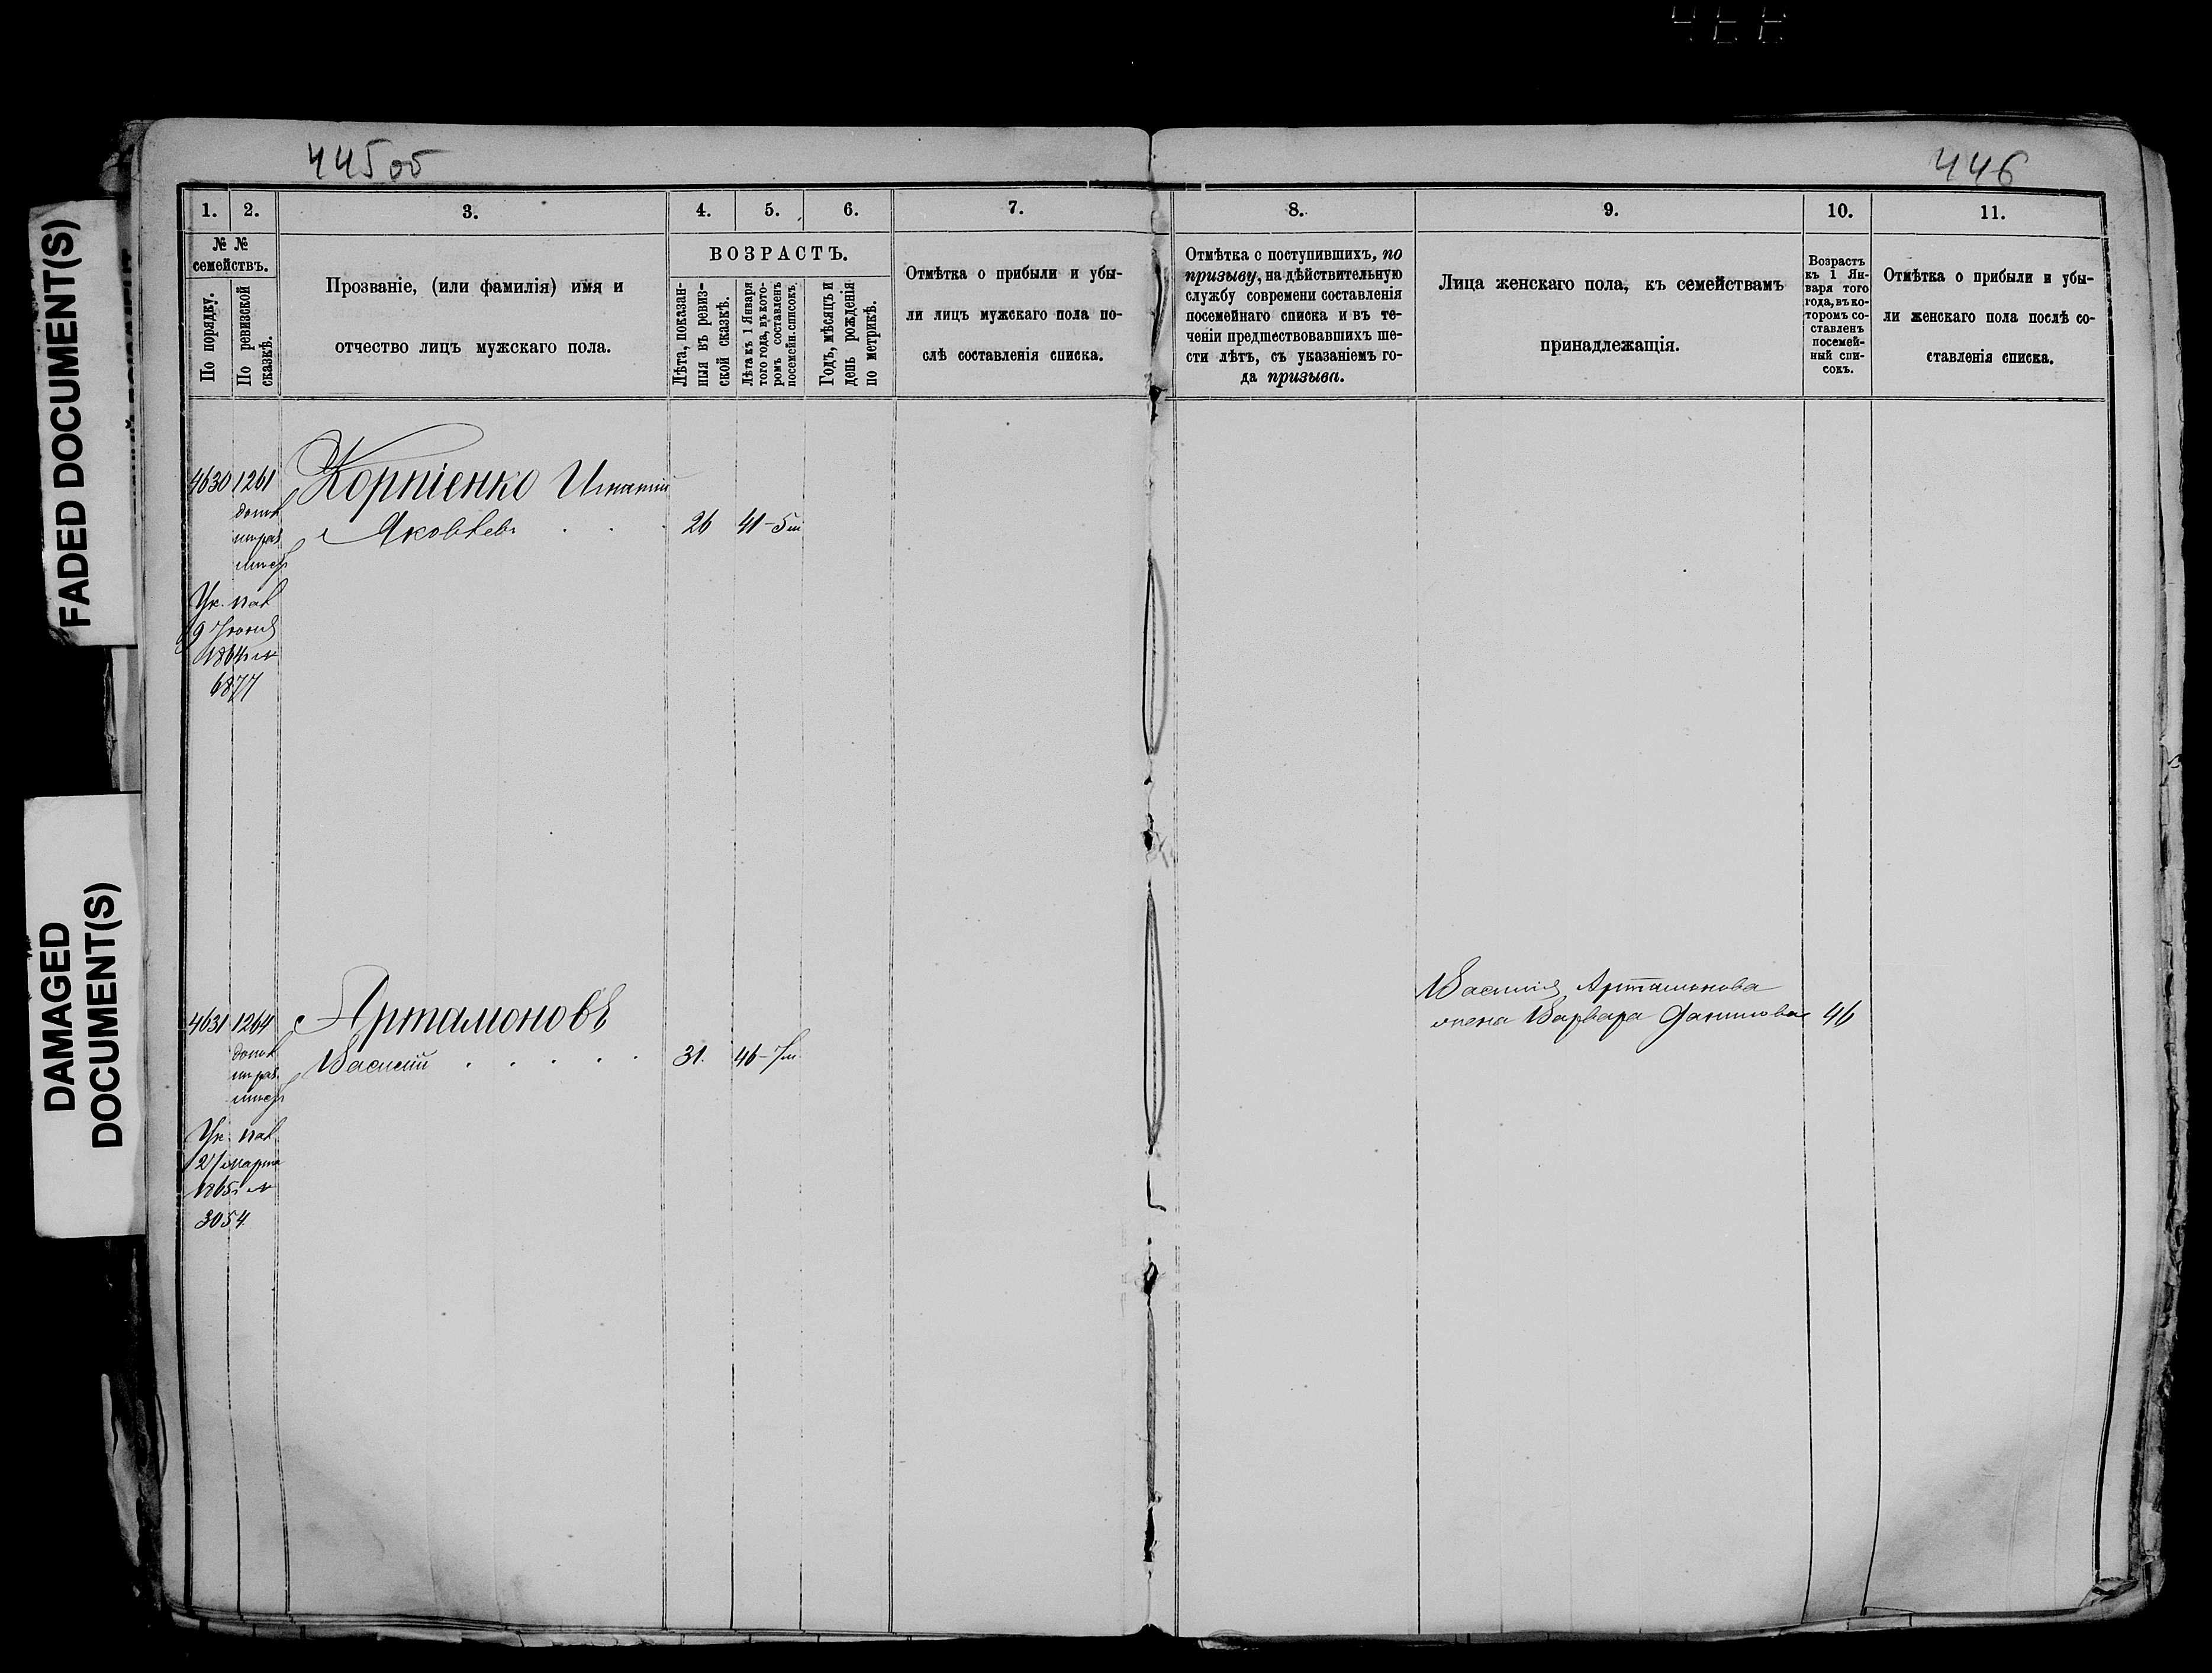 445об
446
FADED DOCUMENT(S)
DAMAGED
DOCUMENT(S)
1.
2.
3.
4.
5.
6.
7.
8.
9.
10.
11.
№ №
семействъ.
По порядку.
По ревизской
сказкѣ.
Прозваніе, (или фамилія) имя и
отчество лицъ мужскаго пола.
ВОЗРАСТЪ.
Лѣта, показан-
ныя въ ревиз-
ской сказкѣ.
Лѣта къ 1 Января
того года, въ кото-
ромъ составленъ
посемейн. списокъ.
Годъ, мѣсяцъ и
день рожденія
по метрикѣ.
Отмѣтка о прибыли и убы-
ли лицъ мужскаго пола по-
слѣ составленія списка.
Отмѣтка о поступившихъ, по
призыву, на дѣйствительную
службу современи составленія
посемейнаго списка и въ те-
ченіи предшествовавшихъ ше-
сти лѣтъ, съ указаніемъ го-
да призыва.
Лица женскаго пола, къ семействамъ
принадлежащія.
Возрастъ
къ 1 Ян-
варя того
года, въ ко-
торомъ со-
ставленъ
посемей-
ный спи-
сокъ.
Отмѣтка о прибыли и убы-
ли женскаго пола послѣ со-
ставленія списка.
4630 1261 Корніенко Игнатій
Яковлевъ 26 41-5м
9
1864г №
6877
4631 1264 Артамоновъ
Василій 31. 46-7м
27 марта
1865г №
3054
Василія Артамонова
жена Варвара Данилова 46